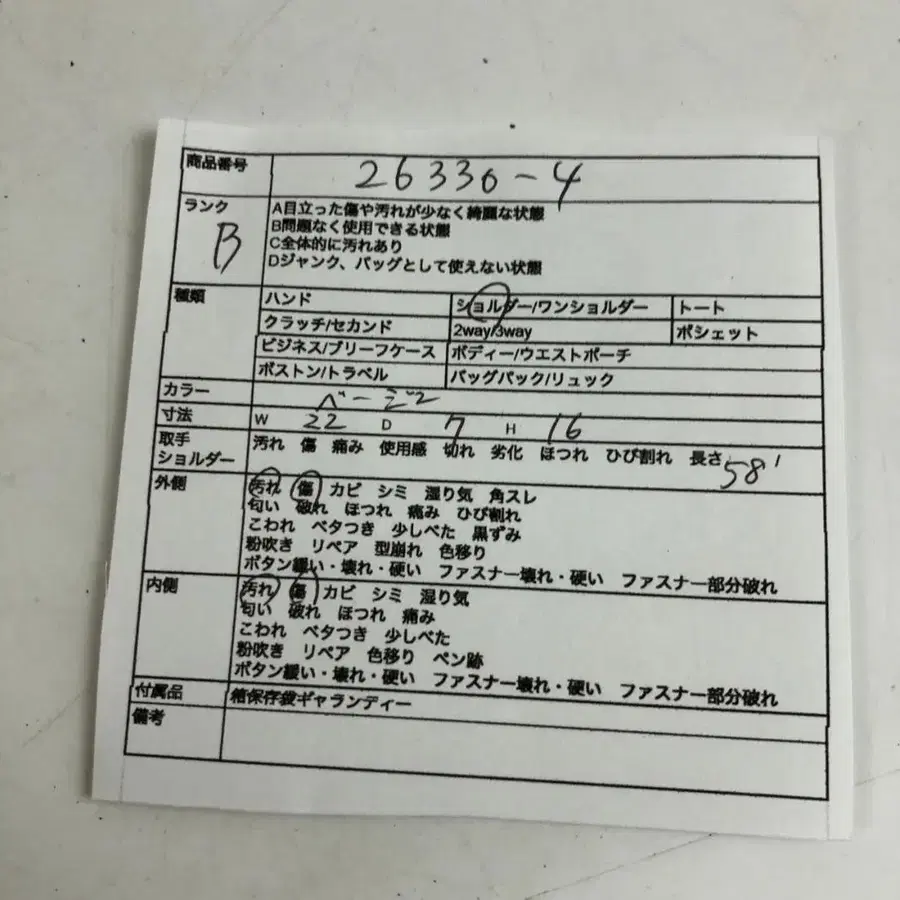 商品番号 26330-4
ランク B
A目立った傷や汚れが少なく綺麗な状態
B問題なく使用できる状態
C全体的に汚れあり
Dジャンク、バッグとして使えない状態
種類 ハンド ショルダー/ワンショルダー トート
クラッチ/セカンド 2way/3way ポシェット
ビジネス/ブリーフケース ボディー/ウエストポーチ
ボストン/トラベル バッグパック/リュック
カラー
寸法 W 22 D 7 H 16
取手 汚れ 傷 痛み 使用感 切れ 劣化 ほつれ ひび割れ 長さ 58
ショルダー
外側 汚れ 傷 カビ シミ 湿り気 角スレ
匂い 破れ ほつれ 痛み ひび割れ
こわれ ベタつき 少しべた 黒ずみ
粉吹き リペア 型崩れ 色移り
ボタン緩い・壊れ・硬い ファスナー壊れ・硬い ファスナー部分破れ
内側 汚れ 傷 カビ シミ 湿り気
匂い 破れ ほつれ 痛み
こわれ ベタつき 少しべた
粉吹き リペア 色移り ペン跡
ボタン緩い・壊れ・硬い ファスナー壊れ・硬い ファスナー部分破れ
付属品 箱保存袋ギャランティー
備考